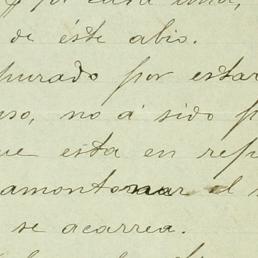 por casa
de éste abio.
purado por estar
uso, no á sido p
ue esta en rep
amontonar el
se acarrea.